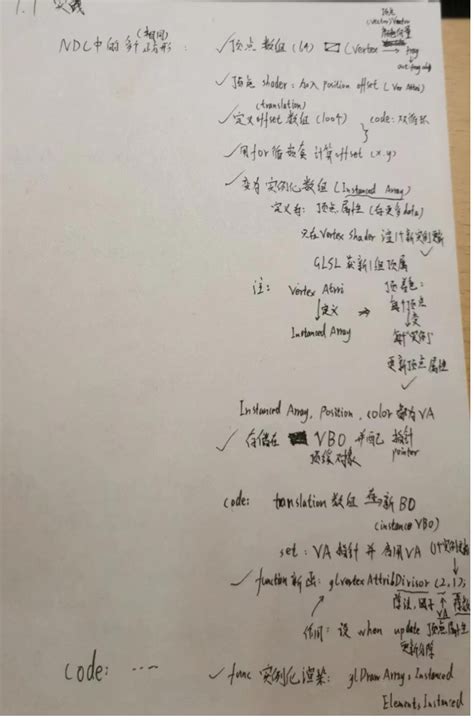 1.1 实践
NDC中的多个正方形:
(相同)
✓ 顶点数组 (6个) (Vertex → frag
out: frag color
✓ 顶点 shader: 加入 position offset (Ver Attri)
(translation)
✓ 定义 offset 数组 (100个) code: 双循环
✓ 用for循环 计算offset (x.y)
✓ 变为实例化数组 (Instanced Array)
定义为: 顶点属性 (存更多data)
只在Vertex Shader 渲1个新实例更新
GLSL 获新1组顶属
注: Vertex Attri 顶着色:
↓定义 ⇒ 每个顶点
Instanced Array ↓变
每个"实例"
更新顶点属性
Instanced Array, Position, color 都为VA
✓ 存储在 VBO 并配 指针
顶缓对象 pointer
code: translation 数组 在→新 BO
(instance VBO)
set: VA 指针 并 启用VA
✓ function 新函: glVertexAttribDivisor (2,1);
除法, 因子 VA
作用: 设 when update 顶点属性
code: ····
✓ func 实例化渲染: glDrawArrays, Instanced
Elements Instanced